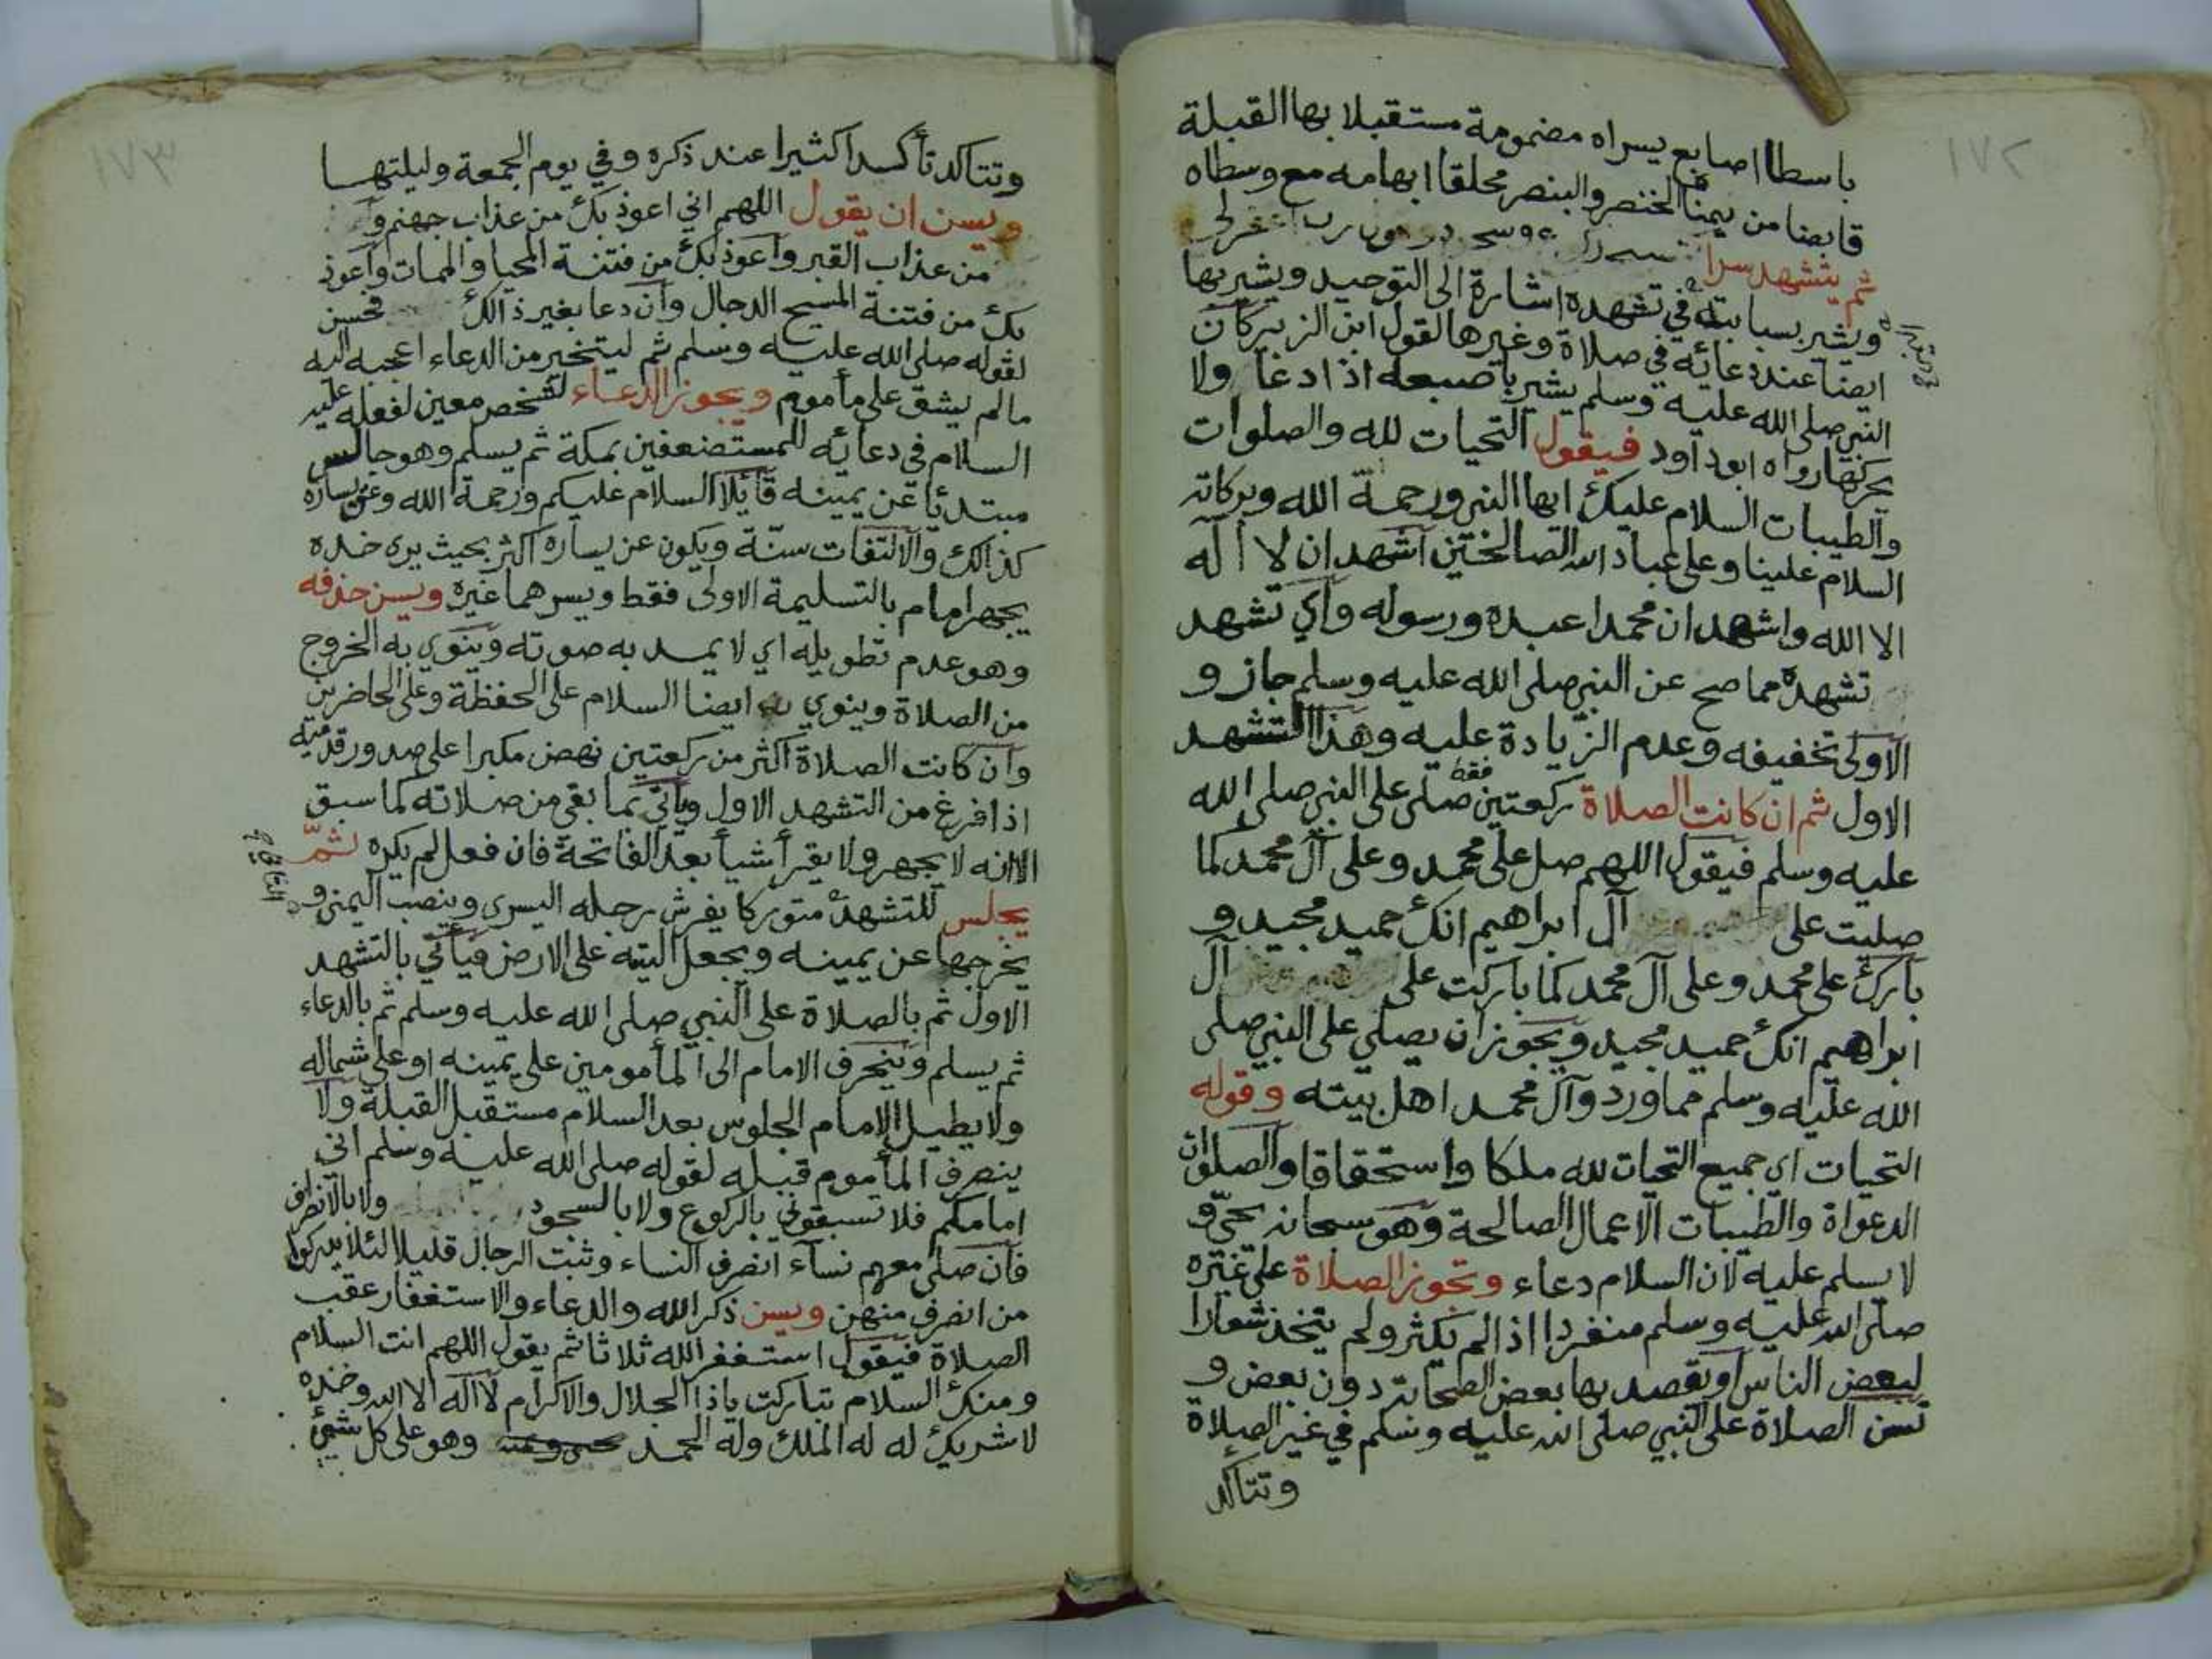 ١٧٢
باسطا اصابع يسراه مضمومة مستقبلا بها القبلة
قابضا من يمناه الخنصر والبنصر محلقا ابهامه مع وسطاه
ثم يتشهد سرا رب اغفر لي
ويشير بسبابته في تشهده اشارة الى التوحيد ويشير بها
ايضا عند دعائه في صلاة وغيرها لقول ابن الزبير كان
النبي صلى الله عليه وسلم يشير باصبعه اذا دعا ولا
يحركها رواه ابوداود فيقول التحيات لله والصلوات
والطيبات السلام عليك ايها النبي ورحمة الله وبركاته
السلام علينا وعلى عباد الله الصالحين اشهد ان لا اله
الا الله واشهد ان محمدا عبده ورسوله واي تشهد
تشهده مما صح عن النبي صلى الله عليه وسلم جاز و
الاولى تخفيفه وعدم الزيادة عليه وهذا التشهد
الاول ثم ان كانت الصلاة ركعتين فقط صلى على النبي صلى الله
عليه وسلم فيقول اللهم صل على محمد وعلى آل محمد كما
صليت على آل ابراهيم انك حميد مجيد و
بارك على محمد وعلى آل محمد كما باركت على آل
ابراهيم انك حميد مجيد ويجوز ان يصلي على النبي صلى
الله عليه وسلم مما ورد وآل محمد اهل بيته وقوله
التحيات اي جميع التحيات لله ملكا واستحقاقا والصلوات
الدعواة والطيبات الاعمال الصالحة وهو سبحانه يحيى و
لا يسلم عليه لان السلام دعاء وتجوز الصلاة على غيره
صلى الله عليه وسلم منفردا اذا لم يكثر ولم يتخذ شعارا
لبعض الناس او يقصد بها بعض الصحابة دون بعض و
تسن الصلاة على النبي صلى الله عليه وسلم في غير الصلاة
وتتاكد
١٧٣
وتتاكد تأكدا كثيرا عند ذكره وفي يوم الجمعة وليلتها
ويسن ان يقول اللهم اني اعوذ بك من عذاب جهنم و
من عذاب القبر واعوذ بك من فتنة المحيا والممات واعوذ
بك من فتنة المسيح الدجال وان دعا بغير ذالك فحسن
لقوله صلى الله عليه وسلم ثم ليتخير من الدعاء اعجبه اليه
مالم يشق على مأموم ويجوز الدعاء لشخص معين لفعله عليه
السلام في دعائه للمستضعفين بمكة ثم يسلم وهو جالس
مبتدئا عن يمينه قائلا السلام عليكم ورحمة الله وعن يساره
كذالك والالتفات سنة ويكون عن يساره اكثر بحيث يرى خده
يجهر امام بالتسليمة الاولى فقط ويسرهما غيره ويسن حذفه
وهو عدم تطويله اي لا يمد به صوته وينوي به الخروج
من الصلاة وينوي به ايضا السلام على الحفظة وعلى الحاضرين
وان كانت الصلاة اكثر من ركعتين نهض مكبرا على صدور قدميه
اذا فرغ من التشهد الاول ويأتي بما بقي من صلاته كما سبق
الا انه لا يجهر ولا يقرأ شيأ بعد الفاتحة فان فعل لم يكره ثمّ
يجلس للتشهد متوركا يفرش رجله اليسرى وينصب اليمنى و
الثاني
يخرجها عن يمينه ويجعل اليته على الارض فيأتي بالتشهد
الاول ثم بالصلاة على النبي صلى الله عليه وسلم ثم بالدعاء
ثم يسلم وينحرف الامام الى المأمومين على يمينه او على شماله
ولا يطيل الامام الجلوس بعد السلام مستقبل القبلة ولا
ينصرف المأموم قبله لقوله صلى الله عليه وسلم اني
امامكم فلا تسبقوني بالركوع ولا بالسجود ولا بالانصراف
فان صلى معهم نساء انصرف النساء وثبت الرجال قليلا لئلا يدركوا
من انصرف منهن ويسن ذكر الله والدعاء والاستغفار عقب
الصلاة فيقول استغفر الله ثلاثا ثم يقول اللهم انت السلام
ومنك السلام تباركت ياذا الجلال والاكرام لا اله الا الله وحده
لا شريك له له الملك وله الحمد وهو على كل شيئ